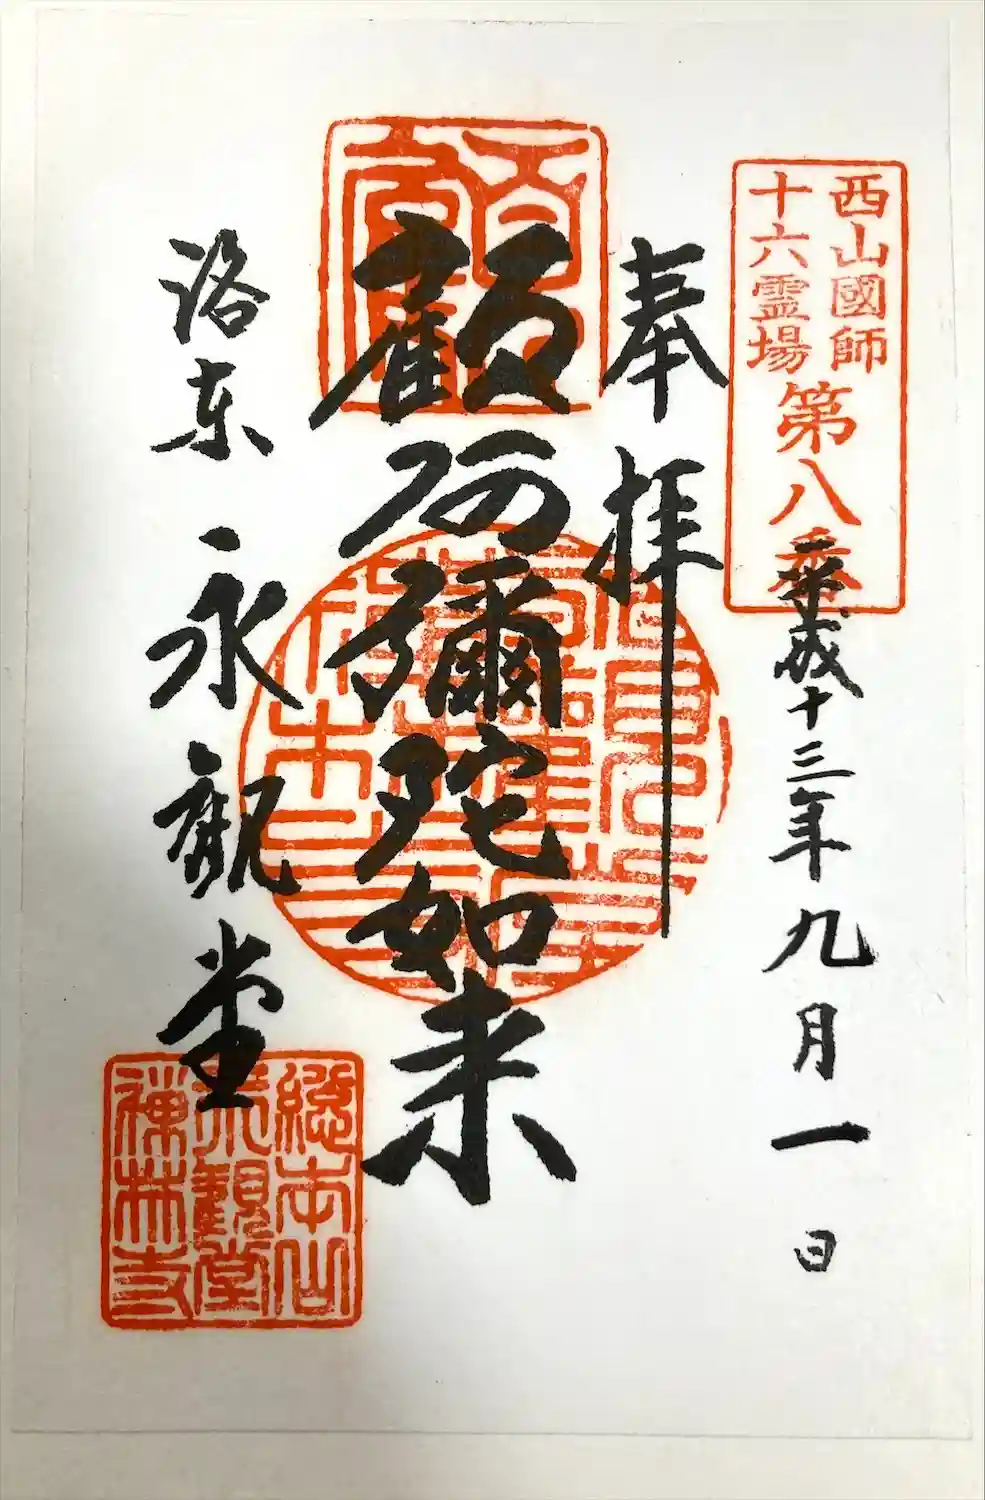 西山國師
十六霊場
第八番
平成十三年九月一日
奉拝
顧阿彌陀如来
洛東 永觀堂
総本山
永觀堂
禅林寺